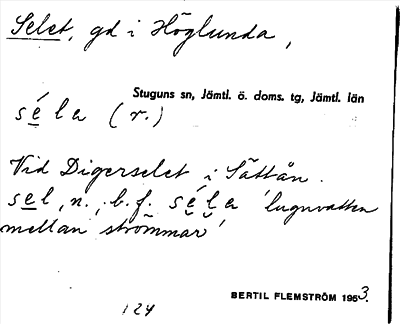 Selet, gd i Höglunda,
Stuguns sn, Jämtl. ö. doms. tg, Jämtl. län
séla (r.)
Vid Digerselet i Sättån.
sel, n., b.f. séla 'lugnvatten
mellan strömmar'
BERTIL FLEMSTRÖM 1953.
124